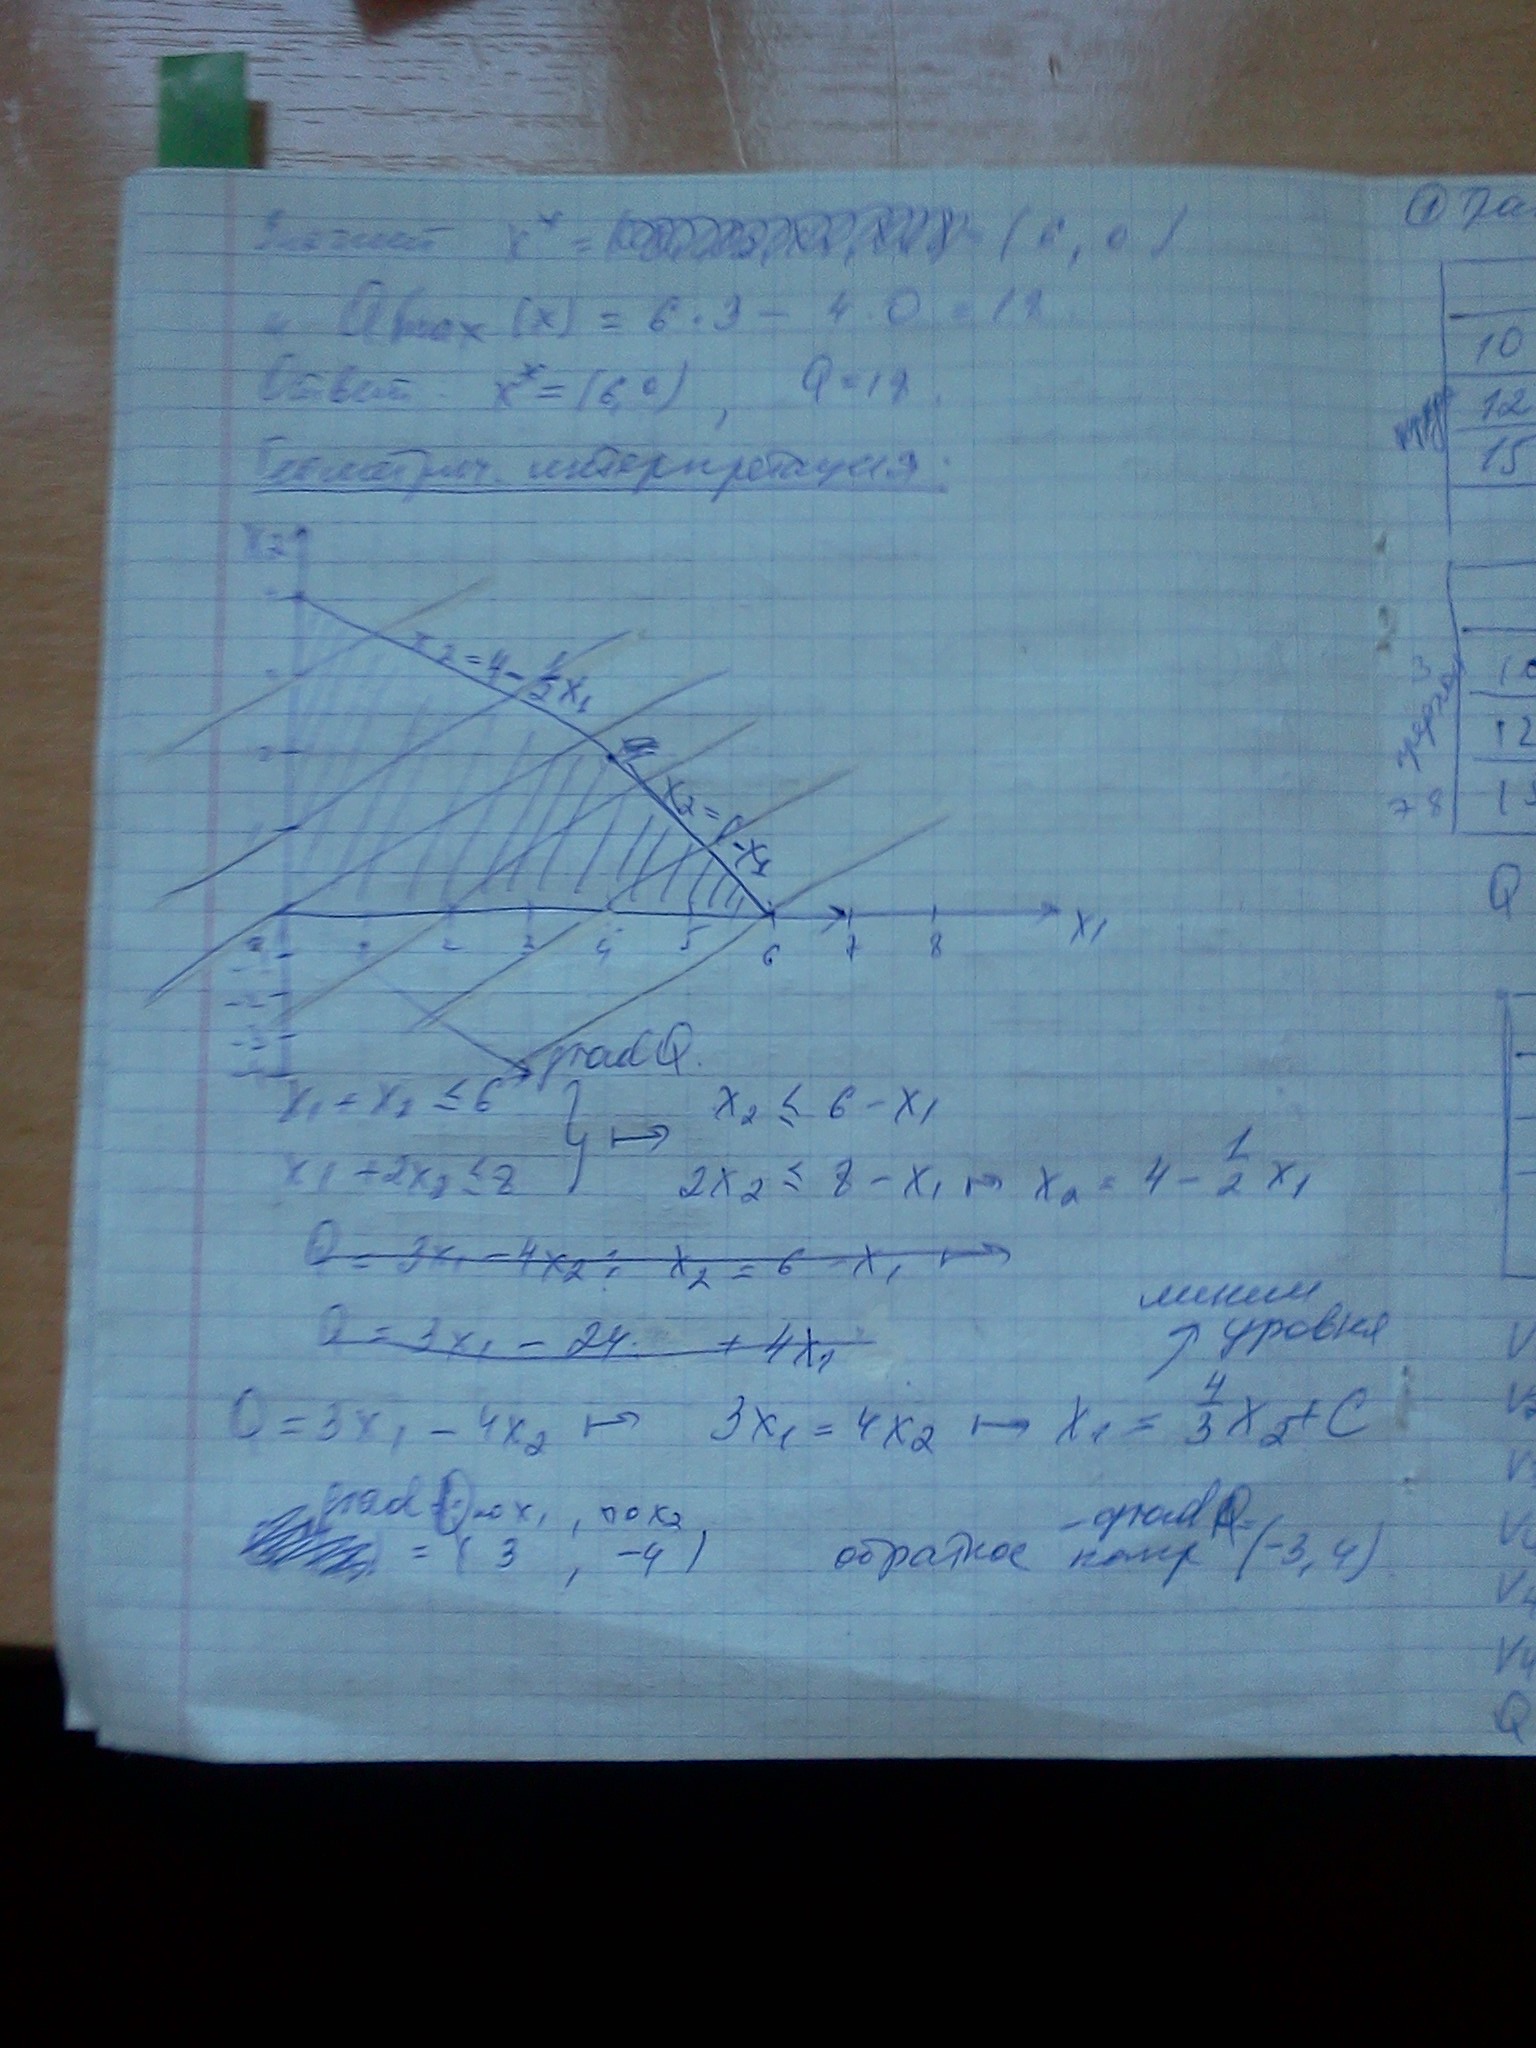 Значит x* = (6, 0)
и Qmax [x] = 6·3 - 4·0 = 18.
Ответ. x* = (6,0), Q=18.
Геометрич. интерпретация:
x2
x2=4-1/2x1
x2=6-x1
1 2 3 4 5 6 7 8 x1
-1
-2
-3
-4
grad Q.
x1 + x2 ≤ 6 } ↦ x2 ≤ 6 - x1
x1 + 2x2 ≤ 8 2x2 ≤ 8 - x1 ↦ x2 = 4 - 1/2 x1
Q = 3x1 - 4x2 ; x2 = 6 - x1 ↦
Q = 3x1 - 24 + 4x1
линии
↗ уровня
Q = 3x1 - 4x2 ↦ 3x1 = 4x2 ↦ x1 = 4/3 x2 + C
grad Q по x1, по x2,
= (3, -4)
обратное напр -grad Q = (-3, 4)
10
12
15
3
12
7-8
Q
V2
V4
V4
Q